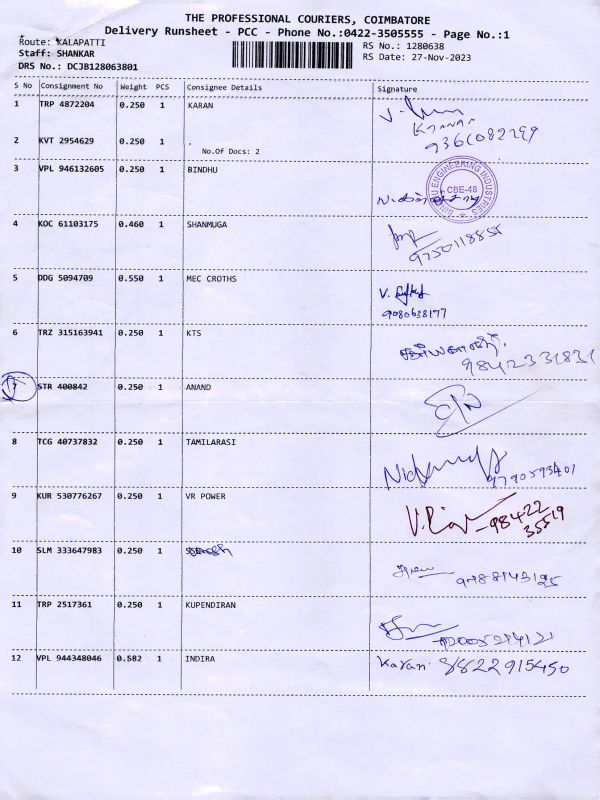 THE PROFESSIONAL COURIERS, COIMBATORE
Delivery Runsheet - PCC - Phone No.:0422-3505555 - Page No.:1
Route: KALAPATTI
Staff: SHANKAR
DRS No.: DCJB128063801
RS No.: 1280638
RS Date: 27-Nov-2023
S No Consignment No Weight PCS Consignee Details Signature
1 TRP 4872204 0.250 1 KARAN
2 KVT 2954629 0.250 1 .
No.Of Docs: 2
3 VPL 946132605 0.250 1 BINDHU
BINDHU ENGINEERING INDUSTRIES
CBE-48
4 KOC 61103175 0.460 1 SHANMUGA
9750118855
5 DDG 5094709 0.550 1 MEC CROTHS
9080638177
6 TRZ 315163941 0.250 1 KTS
9842331831
7 STR 400842 0.250 1 ANAND
8 TCG 40737832 0.250 1 TAMILARASI
9790593401
9 KUR 530776267 0.250 1 VR POWER
98422
35519
10 SLM 333647983 0.250 1
11 TRP 2517361 0.250 1 KUPENDIRAN
12 VPL 944348046 0.582 1 INDIRA
Karan. 8822915450